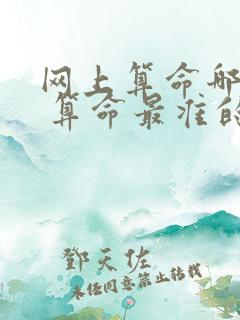 网上算命哪
算命最准的
鄧天佐
未经同意禁止转载